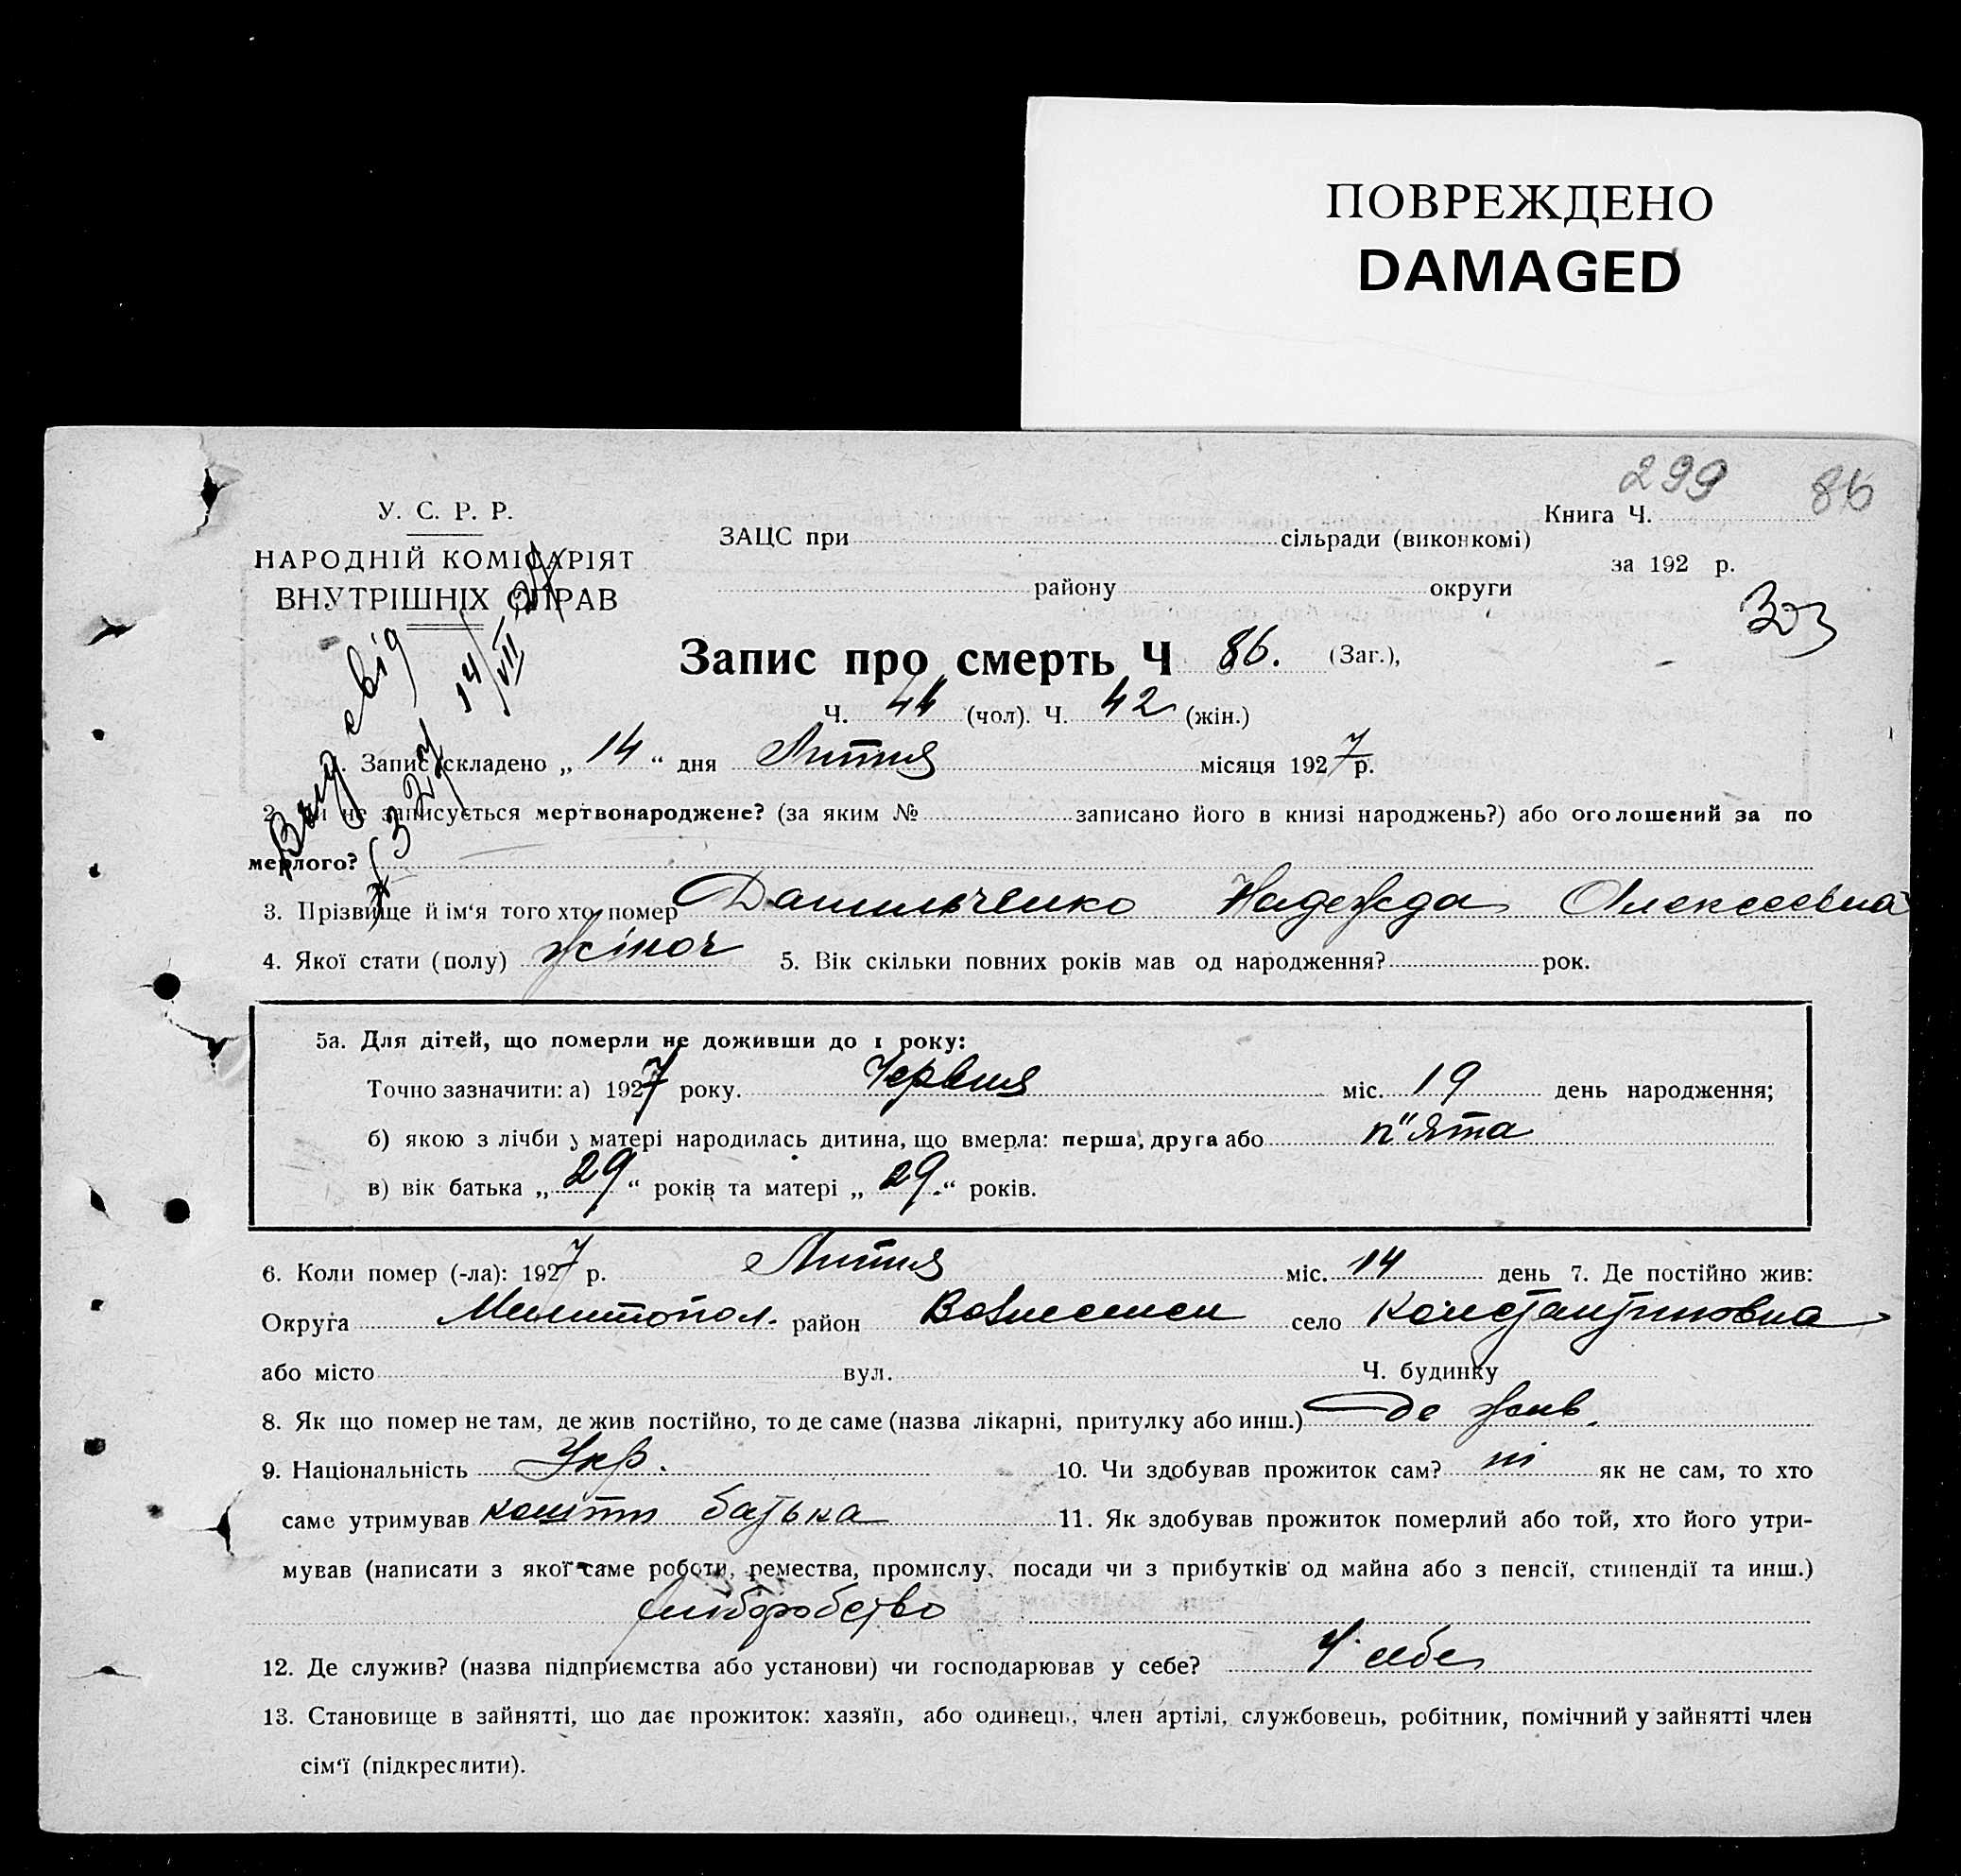 ПОВРЕЖДЕНО
DAMAGED
299 86
У. С. Р. Р.
НАРОДНІЙ КОМІСАРІЯТ
ВНУТРІШНІХ СПРАВ
ЗАЦС при сільради (виконкомі)
району округи
Книга Ч.
за 192 р.
Запис про смерть Ч 86. (Заг.),
Ч. 44 (чол). Ч. 42 (жін.)
Запис складено „ 14 “ дня Липня місяця 1927 р.
2. Чи не записується мертвонароджене? (за яким № записано його в книзі народжень?) або оголошений за по
мерлого?
Вид свід
14/VII 27
3. Прізвище й ім‘я того хто помер Данильченко Надежда Олексеевна
4. Якої стати (полу) жіноч 5. Вік скільки повних років мав од народження? рок.
5а. Для дітей, що померли не доживши до 1 року:
Точно зазначити: а) 1927 року. Червня міс. 19 день народження;
б) якою з лічби у матері народилась дитина, що вмерла: перша, друга або п"ята
в) вік батька „ 29 “ років та матері „ 29 “ років.
6. Коли помер (-ла): 1927 р. Липня міс. 14 день 7. Де постійно жив:
Округа Мелитопол. район Вознесенск село Константиновка
або місто вул. Ч. будинку
8. Як що помер не там, де жив постійно, то де саме (назва лікарні, притулку або инш.) де жив.
9. Національність Укр. 10. Чи здобував прожиток сам? ні як не сам, то хто
саме утримував кошти батька 11. Як здобував прожиток померлий або той, хто його утри-
мував (написати з якої саме роботи, ремества, промислу, посади чи з прибутків од майна або з пенсії, стипендії та инш.)
хліборобство
12. Де служив? (назва підприємства або установи) чи господарював у себе? У себе
13. Становище в зайнятті, що дає прожиток: хазяїн, або одинець, член артілі, службовець, робітник, помічний у зайнятті член
сім‘ї (підкреслити).